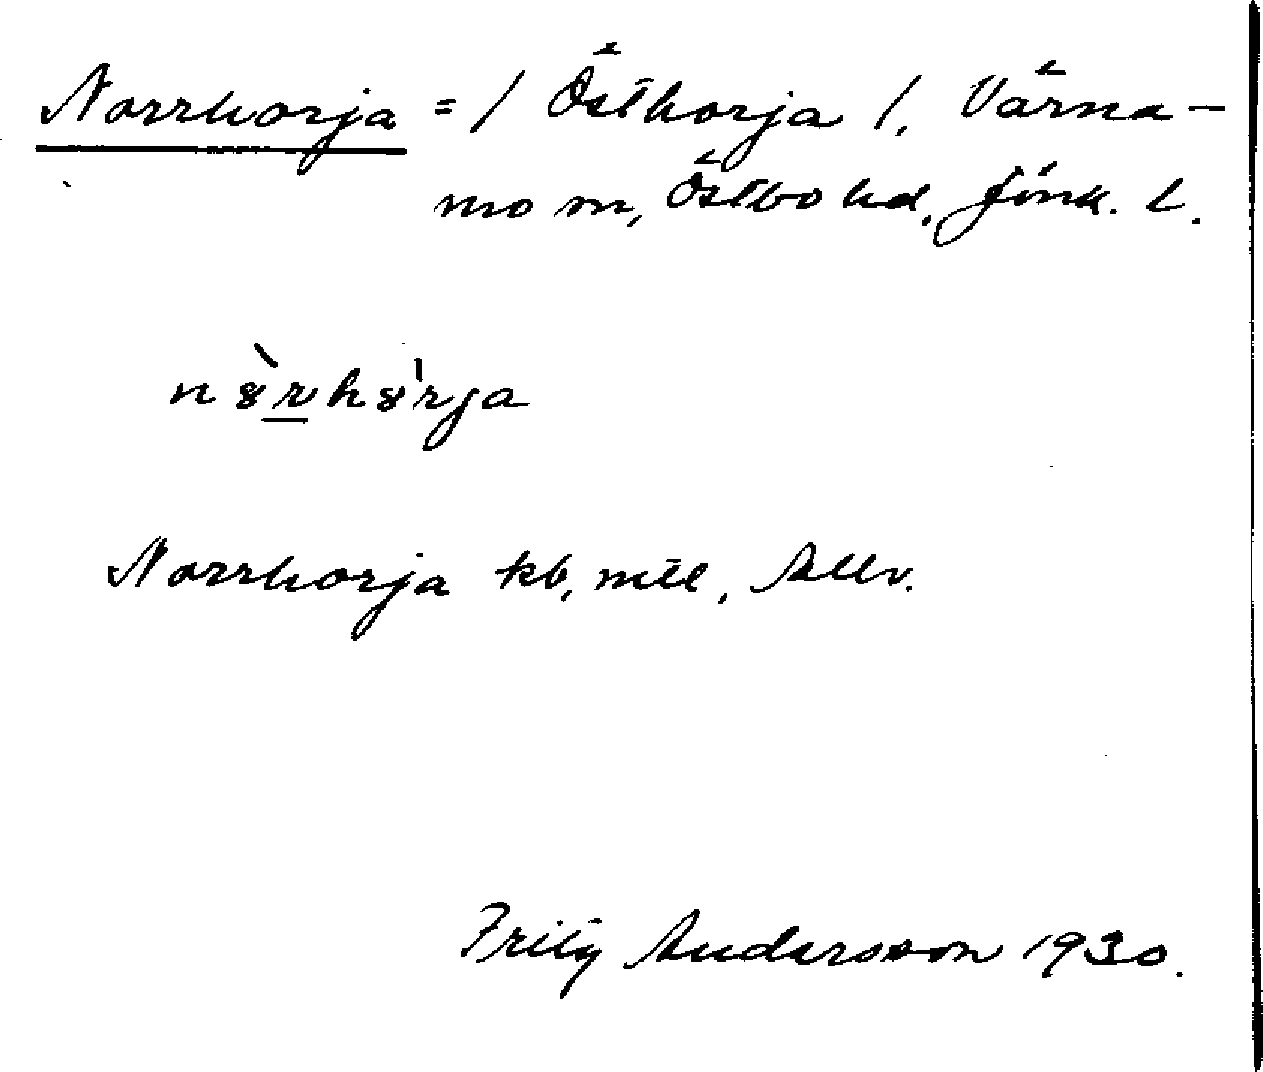 Norrhorja = / Östhorja /, Värna-
mo sn, Östbo hd, Jönk. l.
nörhörja
Norrhorja kb, mtl, Allv.
Fritz Andersson 1930.